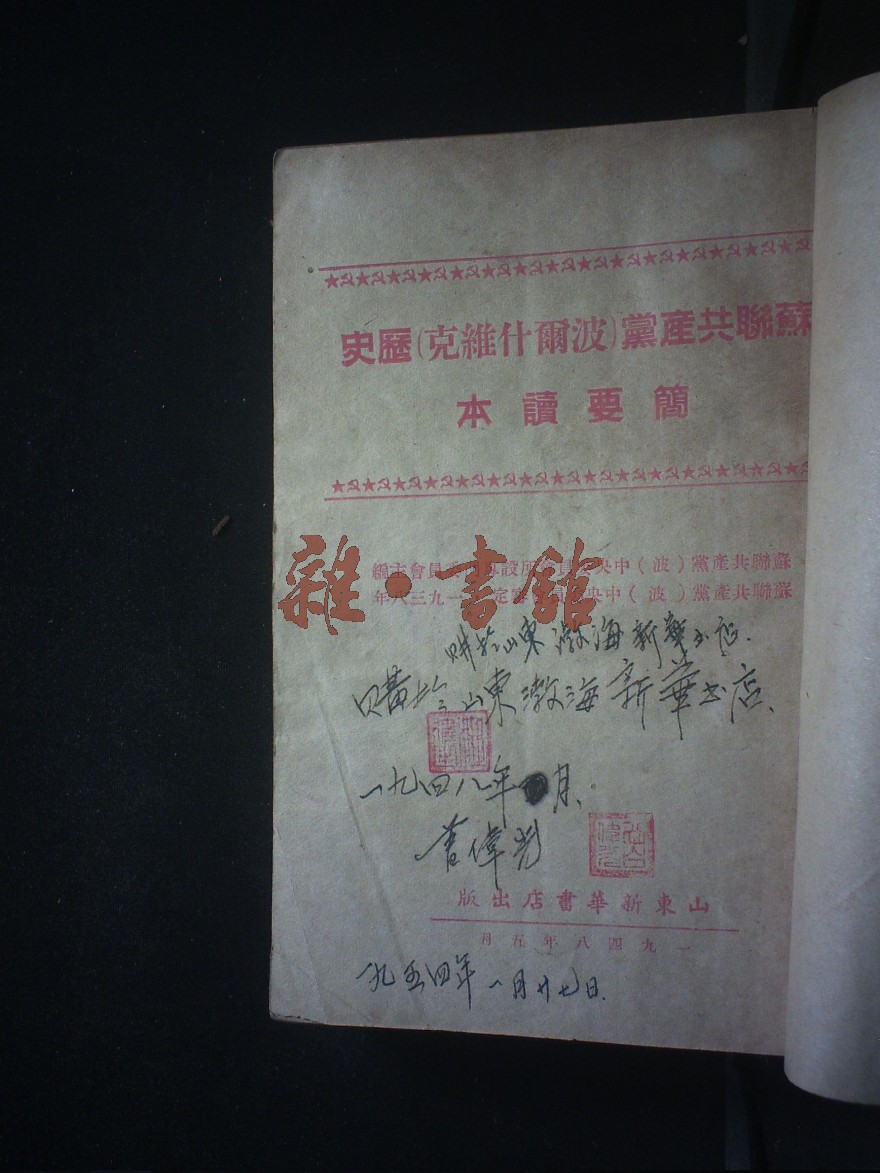 蘇聯共產黨(波爾什維克)歷史
簡要讀本
蘇聯共產黨(波)中央員會主編
蘇聯共產黨(波)中央定一九三八年
雜·書館
山東渤海新華书店.
購於山東渤海新華书店、
一九四八年月、
偉
山東新華書店出版
一九四八年五月
一九五四年一月廿七日.